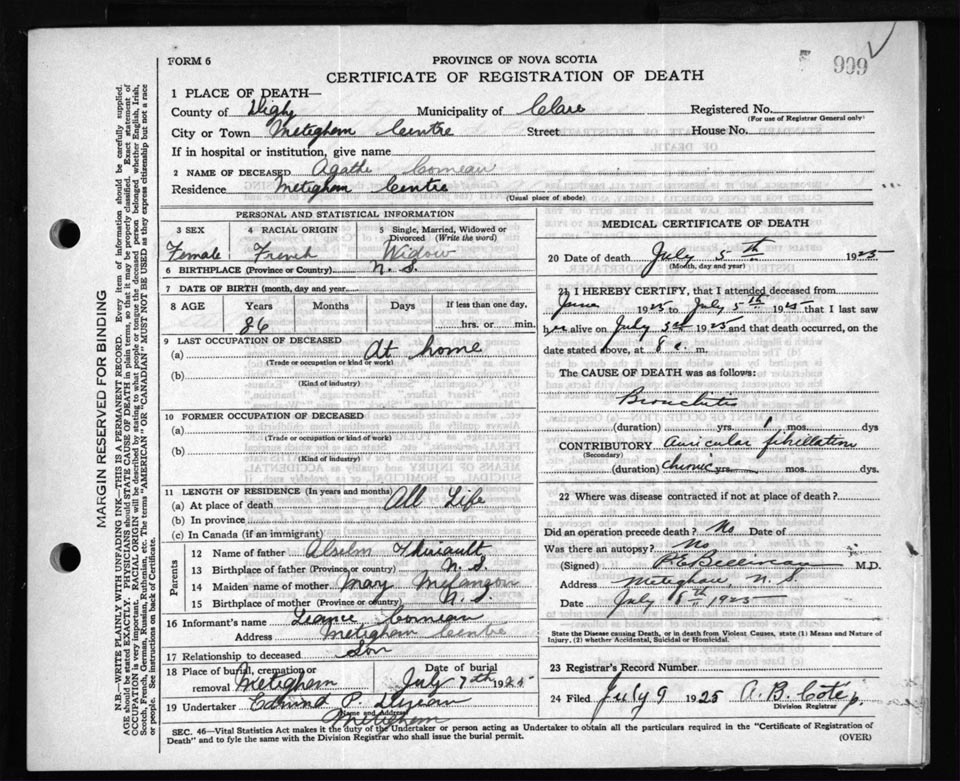 FORM 6
PROVINCE OF NOVA SCOTIA
999
CERTIFICATE OF REGISTRATION OF DEATH
1 PLACE OF DEATH—
County of Digby Municipality of Clare Registered No.
(For use of Registrar General only)
City or Town Meteghem Centre Street House No.
If in hospital or institution, give name
2 NAME OF DECEASED Agathe Comeau
Residence Meteghem Centre
(Usual place of abode)
PERSONAL AND STATISTICAL INFORMATION
3 SEX 4 RACIAL ORIGIN 5 Single, Married, Widowed or Divorced (Write the word)
Female French Widow
6 BIRTHPLACE (Province or Country) N. S.
7 DATE OF BIRTH (month, day and year)
8 AGE Years Months Days If less than one day,
86 hrs. or min.
9 LAST OCCUPATION OF DECEASED
(a) At home
(Trade or occupation or kind of work)
(b)
(Kind of industry)
10 FORMER OCCUPATION OF DECEASED
(a)
(Trade or occupation or kind of work)
(b)
(Kind of industry)
11 LENGTH OF RESIDENCE (In years and months)
(a) At place of death All Life
(b) In province
(c) In Canada (if an immigrant)
Parents
12 Name of father Alselm Thiriault
13 Birthplace of father (Province or country) N. S.
14 Maiden name of mother Mary Melançon
15 Birthplace of mother (Province or country) N. S.
16 Informant's name Comeau
Address Meteghem Centre
17 Relationship to deceased Son
18 Place of burial, cremation or removal Meteghem Date of burial July 7th 1925
19 Undertaker Edmund P.
(Name and Address)
Meteghem
MEDICAL CERTIFICATE OF DEATH
20 Date of death July 5th 1925
(Month, day and year)
21 I HEREBY CERTIFY, that I attended deceased from
June 1925 to July 5th 1925 that I last saw
her alive on July 1925 and that death occurred, on the
date stated above, at 8 m.
The CAUSE OF DEATH was as follows:
Bronchitis
(duration) yrs. 1 mos. dys
CONTRIBUTORY Auricular fibrillation
(Secondary)
(duration) chronic yrs. mos. dys.
22 Where was disease contracted if not at place of death?
Did an operation precede death? No Date of
Was there an autopsy? No
(Signed) M.D.
Address Meteghan, N. S.
Date July 8th 1925
State the Disease causing Death, or in death from Violent Causes, state (1) Means and Nature of
Injury, (2) whether Accidental, Suicidal or Homicidal.
23 Registrar's Record Number
24 Filed July 9 1925 A. B. Coté
Division Registrar
SEC. 46—Vital Statistics Act makes it the duty of the Undertaker or person acting as Undertaker to obtain all the particulars required in the "Certificate of Registration of
Death" and to fyle the same with the Division Registrar who shall issue the burial permit.
(OVER)
MARGIN RESERVED FOR BINDING
N.B.—WRITE PLAINLY WITH UNFADING INK—THIS IS A PERMANENT RECORD. Every item of information should be carefully supplied.
AGE should be stated EXACTLY. PHYSICIANS should STATE CAUSE OF DEATH in plain terms, so that it may be properly classified. Exact statement of
OCCUPATION is very important. RACIAL ORIGIN will be described by stating to what people or tongue the deceased person belonged whether English, Irish,
Scotch, French, German, Russian, Ruthenian, etc. The terms "AMERICAN" OR "CANADIAN" MUST NOT BE USED as they express citizenship but not a race
or people. See instructions on back of Certificate.